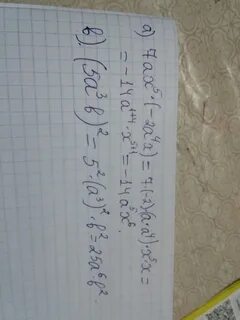 а) 7ax⁵·(-2a⁴x) = 7·(-2)(a·a⁴)·x⁵·x =
= -14a¹⁺⁴·x⁵⁺¹ = -14a⁵x⁶.
в) (5a³b)² = 5²·(a³)²·b² = 25a⁶b².